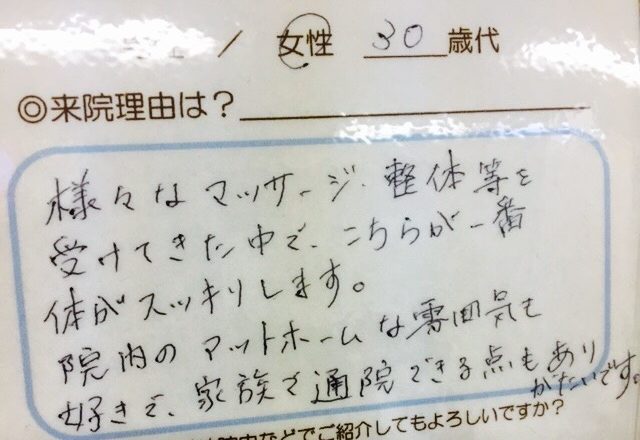 ／ 女性 30 歳代
◎来院理由は？
様々なマッサージ、整体等を
受けてきた中で、こちらが一番
体がスッキリします。
院内のアットホームな雰囲気も
好きで、家族で通院できる点もあり
がたいです。
などでご紹介してもよろしいですか？